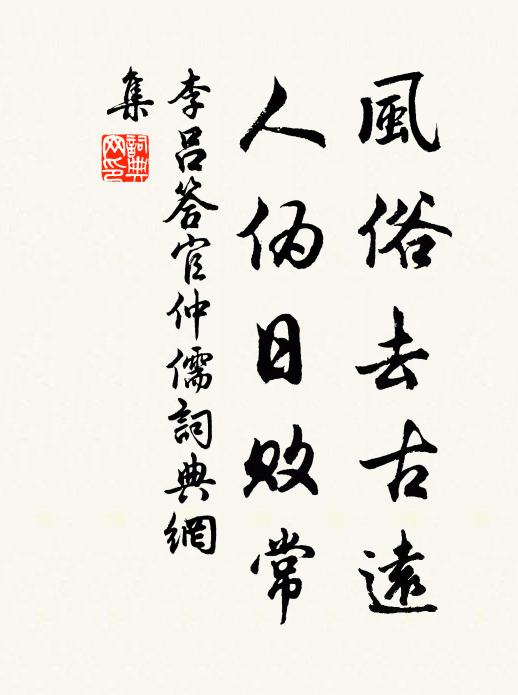 風俗去古遠
人偽日敗常
李呂答官仲儒詞典網
集
詞典網印